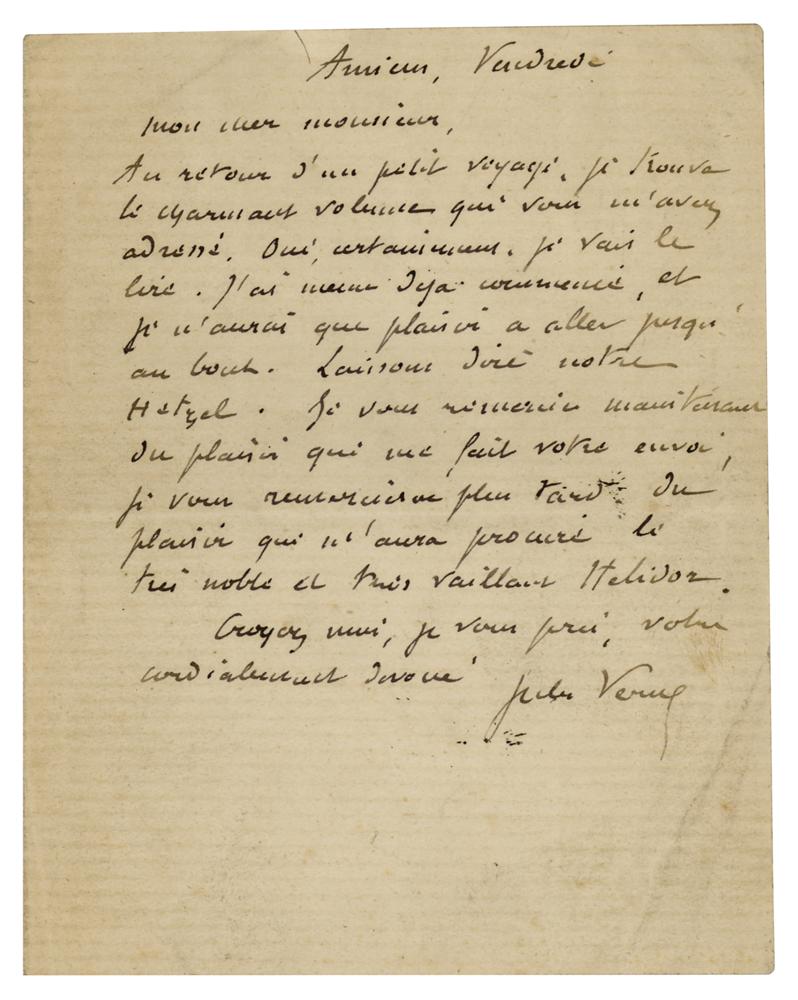 Amiens, Vendredi
Mon cher monsieur,
Au retour d'un petit voyage, je trouve
le charmant volume que vous m'avez
adressé. Oui, certainement, je vais le
lire. J'ai meme deja commencé, et
je n'aurai que plaisir a aller jusqu'
au bout. Laissons dire notre
Hetzel. Je vous remercie maintenant
du plaisir que me fait votre envoi,
je vous remercierai plus tard du
plaisir que m'aura procuré le
très noble et très vaillant Helidor.
Croyez moi, je vous prie, votre
cordialement dévoué
Jules Verne